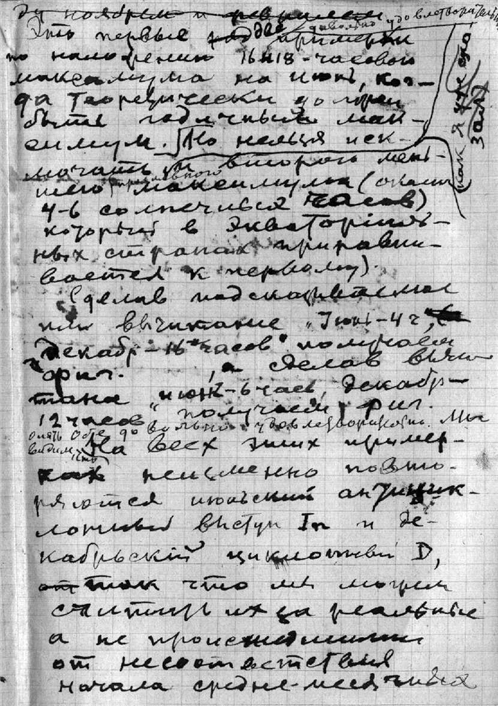 ду ноябрем и
Эти первые два примера довольно удовлетворительны
по наложению 16 и 18-часового
максимума на июнь, ког-
да теоретически должен
быть годичный мак-
симум. Но нельзя иск-
лючать и второго мень-
шего максимума (около
4-6 солнечных часов)
который в экваторіяль-
ных странах приравни-
вается к первому).
Сделав подсказываемое
ими вычитание "Іюнь-4ч,
Декабрь-16 часов" получаем
фиг. , а сделав вычи-
тание "июнь-6час, декабрь-
12 часов" получаем фиг.
опять обе довольно удовлетворительно. Мы
видим, что
На всех этих пример-
ах неизменно повто-
ряются июньский антицик-
лонный выступ In и де-
кабрьскій циклонный D,
так что мы можем
считать их за реальные
а не происшедшими
от несоответствия
начала средне-месячных
как я уже это